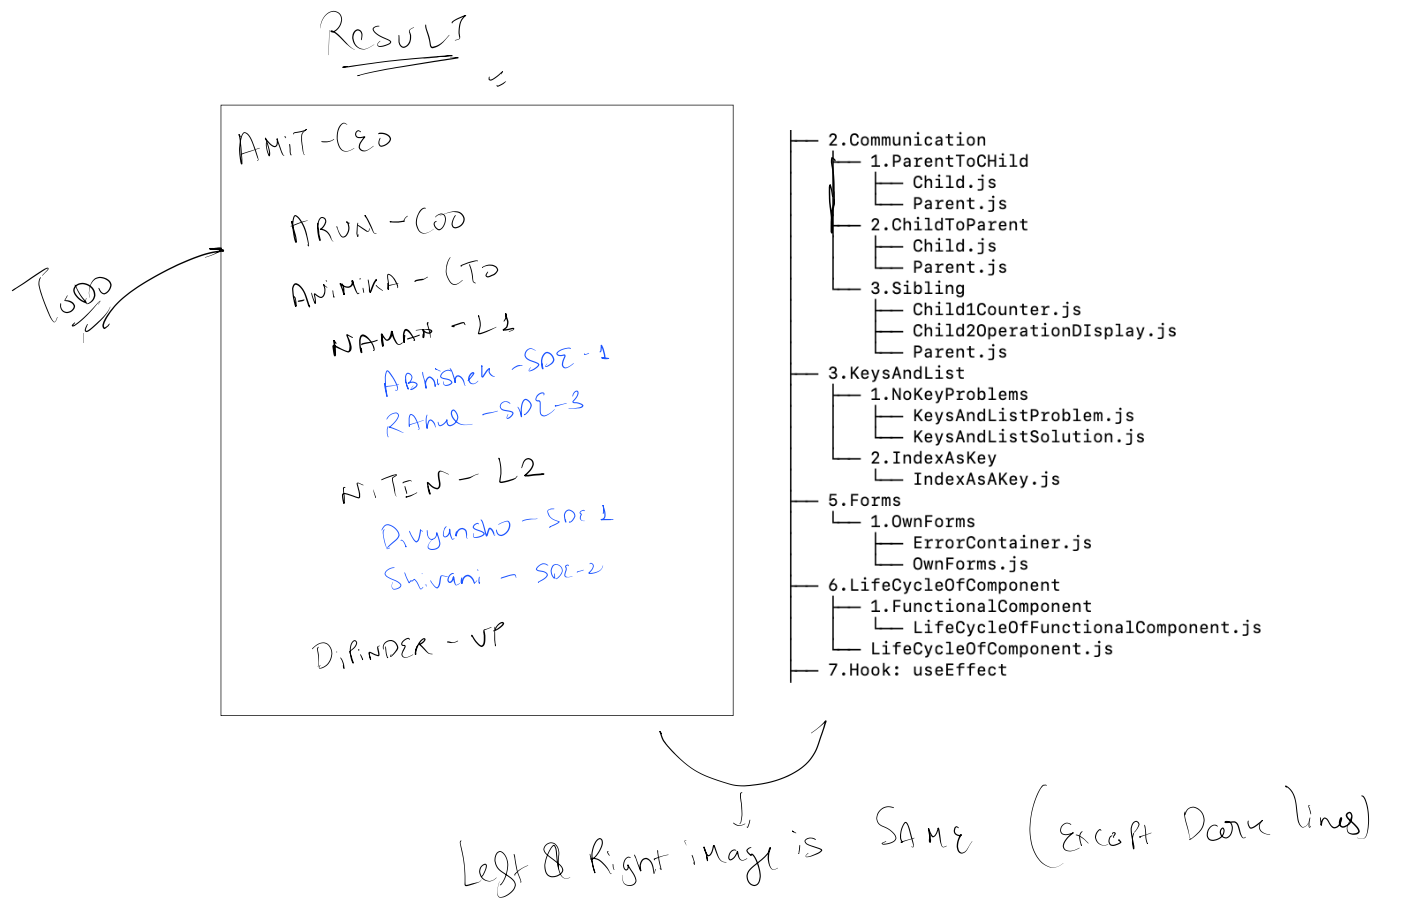 RESULT
TODO
AMIT - CEO
ARUN - COO
ANIMIKA - CTO
NAMAN - L1
ABhishek - SDE - 1
RAhul - SDE - 3
NITIN - L2
Divyanshu - SDE 1
Shivani - SDE - 2
DIPINDER - VP
├── 2.Communication
│   ├── 1.ParentToCHild
│   │   ├── Child.js
│   │   └── Parent.js
│   ├── 2.ChildToParent
│   │   ├── Child.js
│   │   └── Parent.js
│   └── 3.Sibling
│       ├── Child1Counter.js
│       ├── Child2OperationDIsplay.js
│       └── Parent.js
├── 3.KeysAndList
│   ├── 1.NoKeyProblems
│   │   ├── KeysAndListProblem.js
│   │   └── KeysAndListSolution.js
│   └── 2.IndexAsKey
│       └── IndexAsAKey.js
├── 5.Forms
│   └── 1.OwnForms
│       ├── ErrorContainer.js
│       └── OwnForms.js
├── 6.LifeCycleOfComponent
│   ├── 1.FunctionalComponent
│   │   └── LifeCycleOfFunctionalComponent.js
│   └── LifeCycleOfComponent.js
├── 7.Hook: useEffect
Left & Right image is SAME (Except Dark lines)